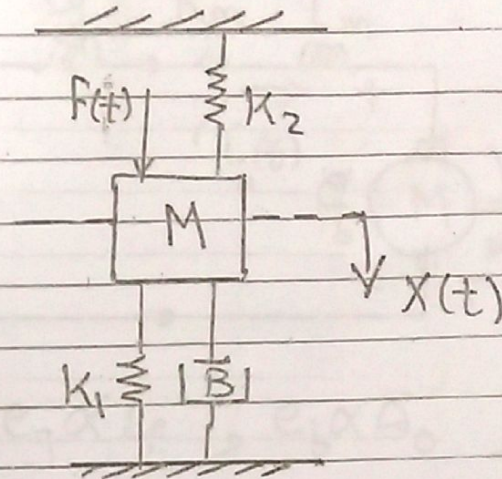 F(t)
K2
M
X(t)
K1
B